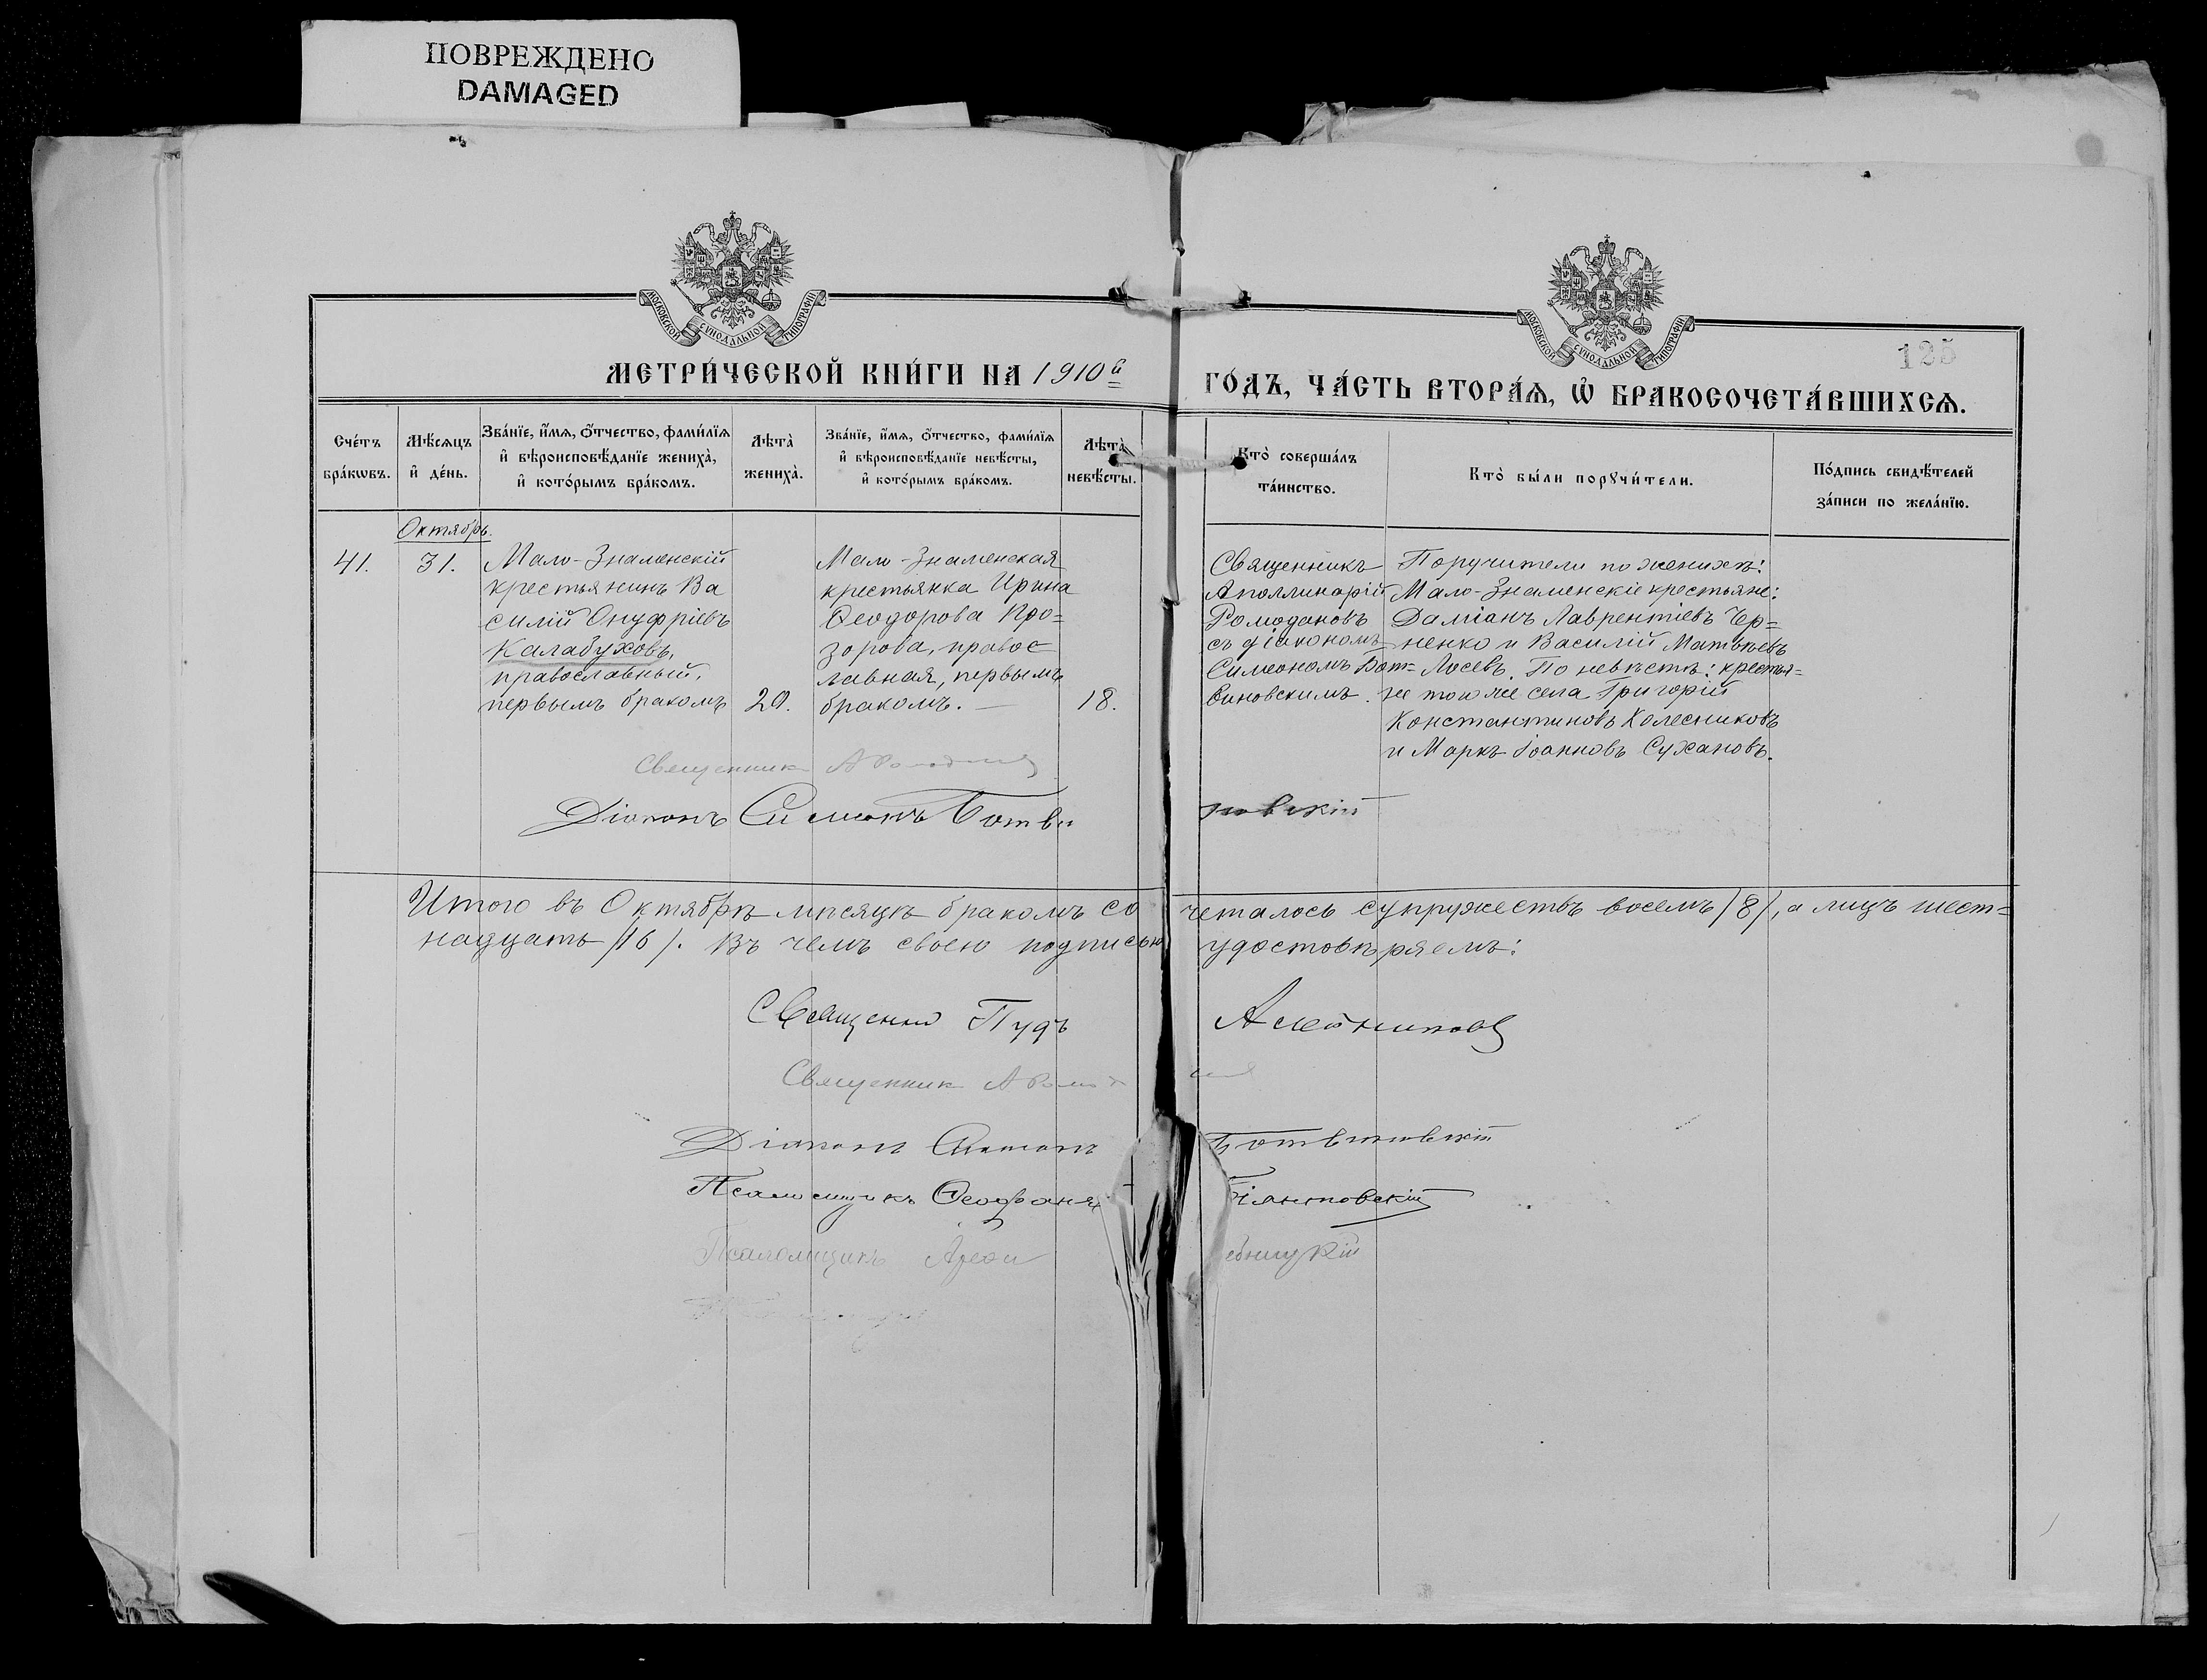 ПОВРЕЖДЕНО
DAMAGED
МОСКОВСКОЙ СѴНОДАЛЬНОЙ ТИПОГРАФІИ
МОСКОВСКОЙ СѴНОДАЛЬНОЙ ТИПОГРАФІИ
125
МЕТРИ́ЧЕСКОЙ КНИ́ГИ НА 1910й
ГО́ДЪ, ЧА́СТЬ ВТОРА́Ѧ, Ѡ҆ БРАКОСОЧЕТА́ВШИХСѦ.
Сче́тъ
бра́кѡвъ.
Мѣ́сѧцъ
и҆ де́нь.
Зва́нїе, и҆́мѧ, ѻ҆́тчество, фами́лїѧ
и҆ вѣроисповѣ́данїе жениха̀,
и҆ кото́рымъ бра́комъ.
Лѣта̀
жениха̀.
Зва́нїе, и҆́мѧ, ѻ҆́тчество, фами́лїѧ
и҆ вѣроисповѣ́данїе невѣ́сты,
и҆ кото́рымъ бра́комъ.
Лѣта̀
невѣ́сты.
Кто̀ соверша́лъ
та́инство.
Кто̀ бы́ли порꙋчи́тели.
По́дпись свидѣ́телей
за́писи по жела́нїю.
Октябрь.
41.
31.
Мало-Знаменскій
крестьянинъ Ва
силій Онуфріевъ
Калабуховъ,
православный,
первымъ бракомъ
20.
Мало-Знаменская
крестьянка Ирина
Ѳеодорова Про=
зорова, правос
лавная, первымъ
бракомъ. —
18.
Священникъ
Аполлинарій
Ромодановъ
съ діакономъ
Симеономъ Бот=
виновскимъ.
Поручители по женихѣ:
Мало-Знаменскіе крестьяне:
Даміанъ Лаврентіевъ Чер=
ненко и Василій Матвѣевъ
Лосевъ. По невѣстѣ: крестья=
не того же села Григорій
Константиновъ Колесниковъ
и Маркъ Іоанновъ Сухановъ.
Священник А
Діаконъ Симеонъ Ботви новскій
Итого въ Октябрѣ мѣсяцѣ бракомъ со четалось супружествъ восемь /8/, а лицъ шест=
надцать /16/. Въ чемъ своею подписью удостовѣряемъ:
Священник Пудъ
Священник А
Діаконъ Симеонъ Ботвиновскій
Псаломщикъ Ѳеофанъ
Псаломщикъ